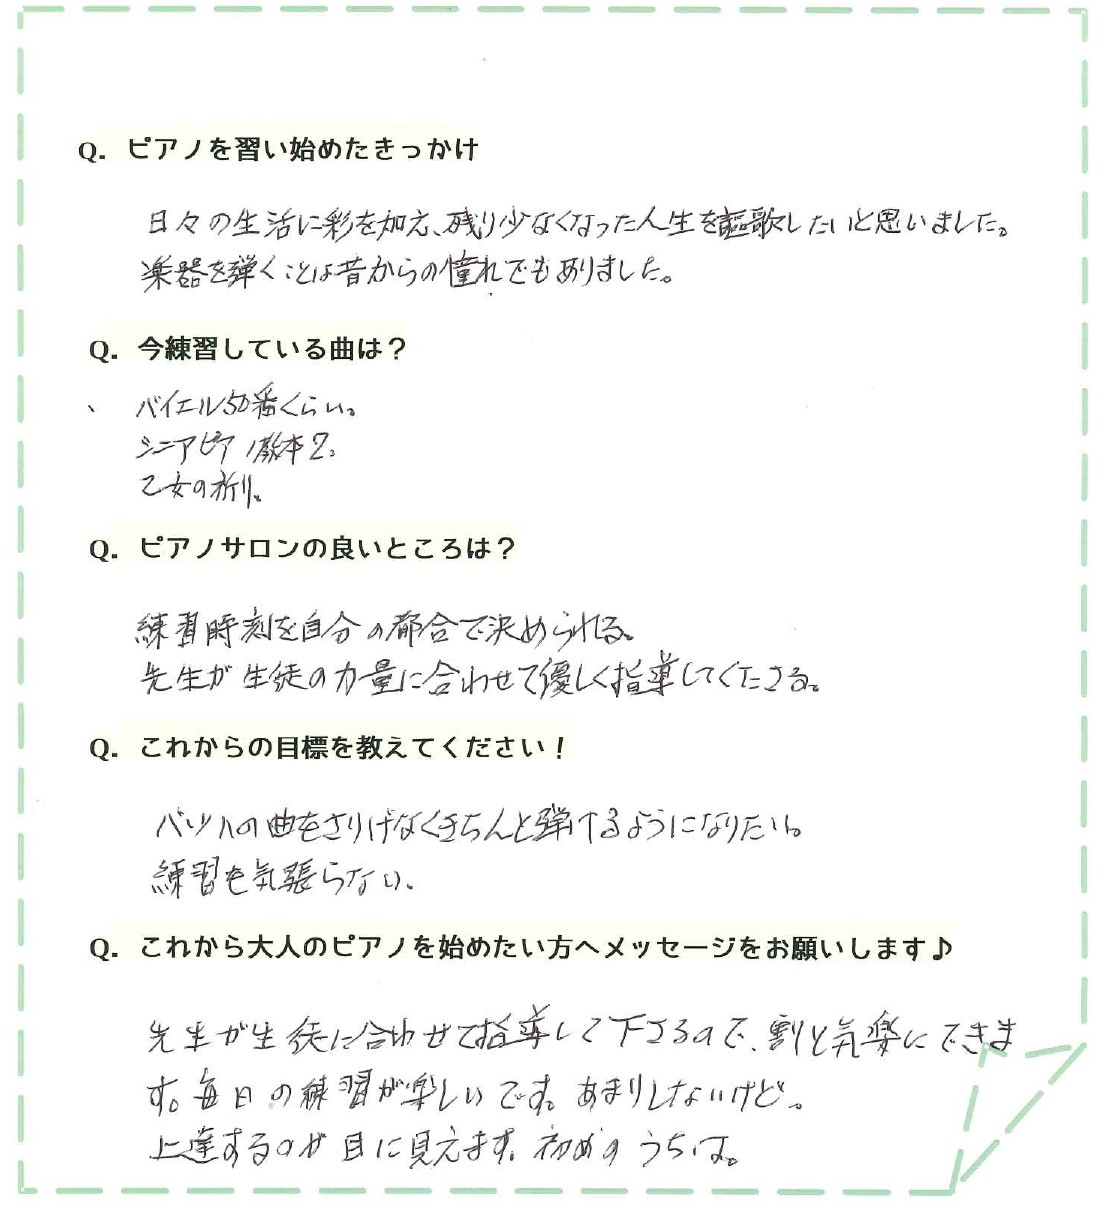 Q. ピアノを習い始めたきっかけ
日々の生活に彩を加え、残り少なくなった人生を謳歌したいと思いました。
楽器を弾くことは昔からの憧れでもありました。
Q. 今練習している曲は？
、バイエル50番くらい。
シニアピアノ教本2。
乙女の祈り。
Q. ピアノサロンの良いところは？
練習時刻を自分の都合で決められる。
先生が生徒の力量に合わせて優しく指導してくださる。
Q. これからの目標を教えてください！
バッハの曲をさりげなくきちんと弾けるようになりたい。
練習も気張らない。
Q. これから大人のピアノを始めたい方へメッセージをお願いします♪
先生が生徒に合わせて指導して下さるので、割と気楽にできま
す。毎日の練習が楽しいです。あまりしないけど。
上達するのが目に見えます。初めのうちは。